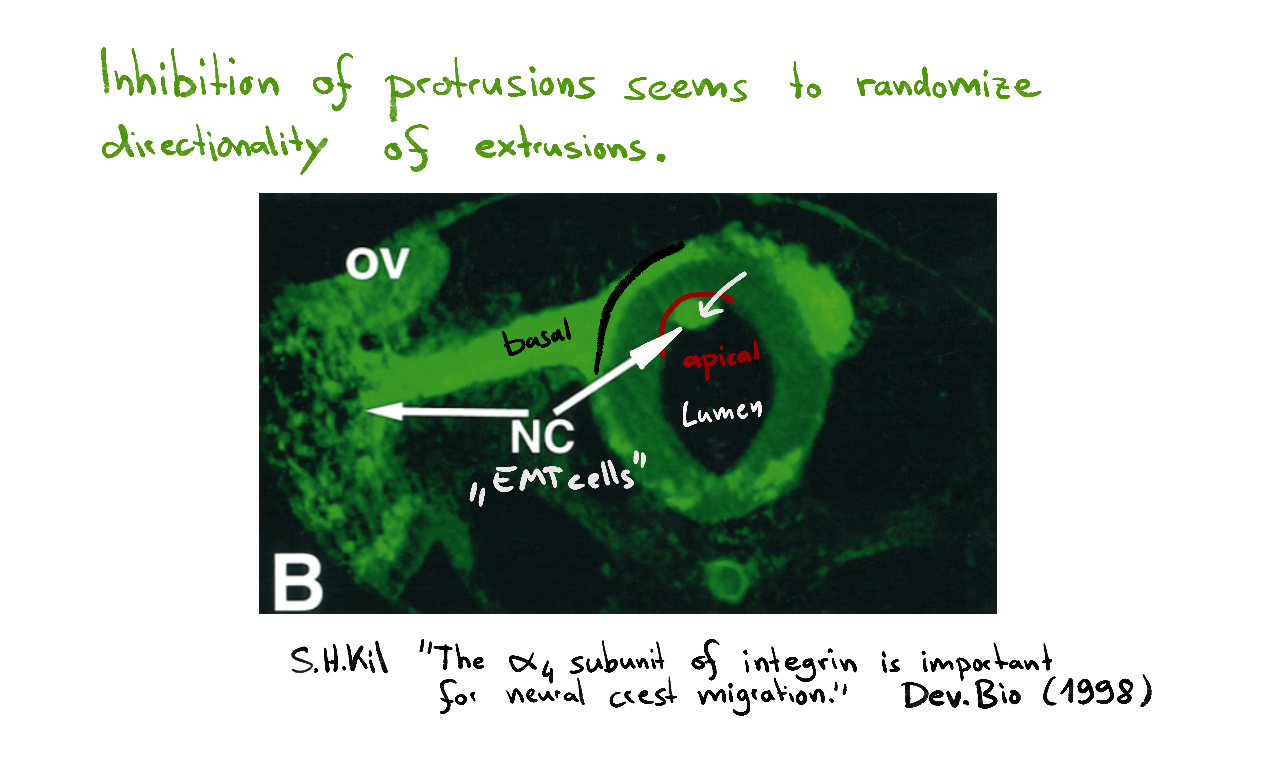 Inhibition of protrusions seems to randomize
directionality of extrusions.
OV
basal
apical
Lumen
NC
„EMT cells"
B
S.H.Kil "The α4 subunit of integrin is important
for neural crest migration." Dev.Bio (1998)